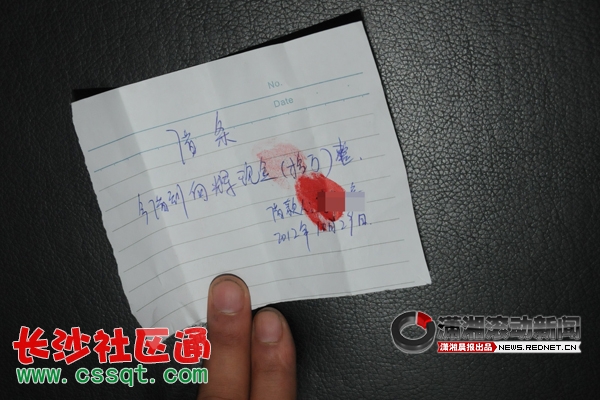 No.
Date
借条
今借到向辉现金(拾万)整.
借款人
2012年 月29日
长沙社区通
www.cssqt.com
潇湘滚动新闻
潇湘晨报出品 NEWS.REDNET.CN